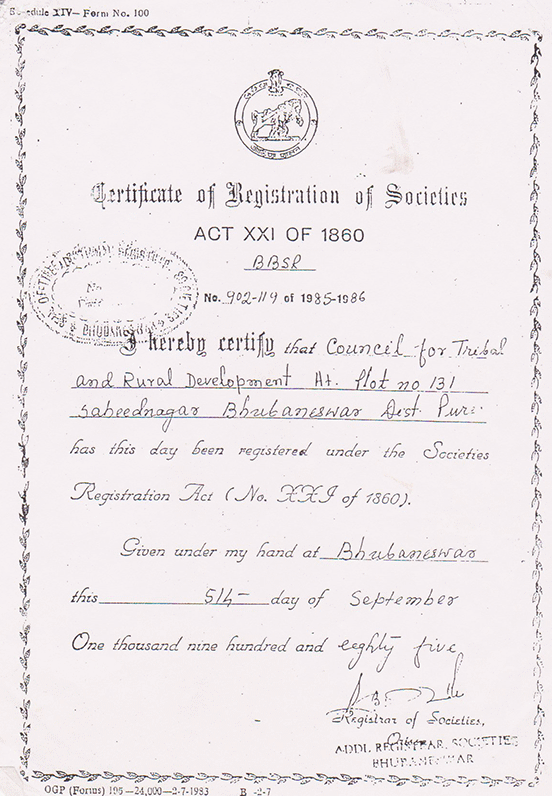 Schedule XIV—Form No. 100
Certificate of Registration of Societies
ACT XXI OF 1860
BBSR
No. 902-119 of 1985-1986
I hereby certify that Council for Tribal
and Rural Development At. Plot no 131
Saheednagar Bhubaneswar Dist. Puri
has this day been registered under the Societies
Registration Act (No. XXI of 1860).
Given under my hand at Bhubaneswar
this 5th day of September
One thousand nine hundred and eighty five
Registrar of Societies,
ADDL. REGISTRAR, SOCIETIES
BHUBANESWAR
OGP (Forms) 195—24,000—2-7-1983 B -2-7